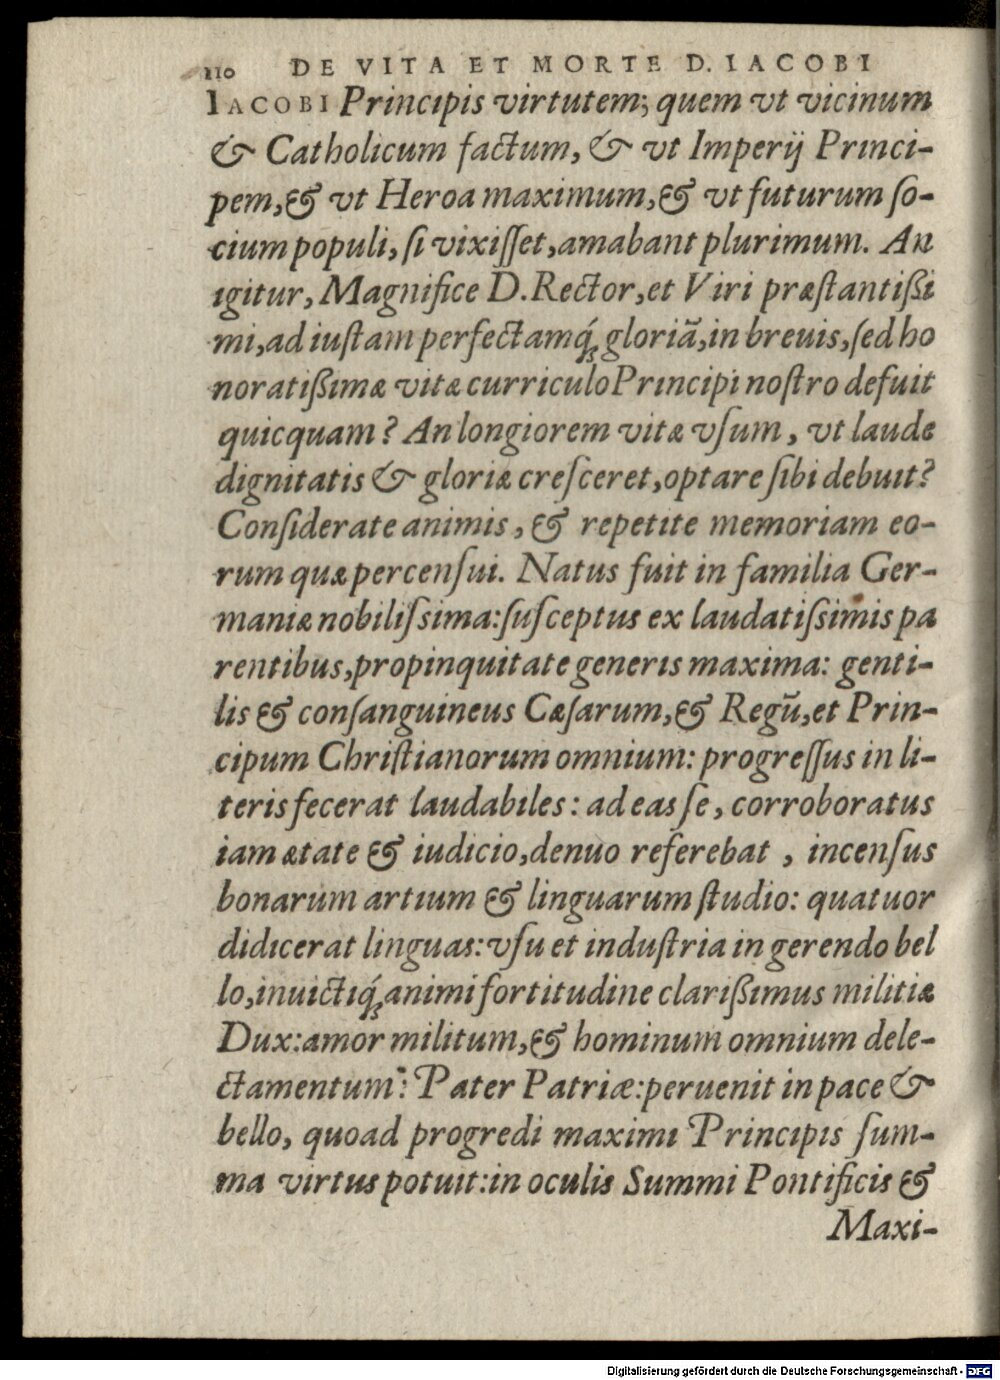 110 DE VITA ET MORTE D. IACOBI
IACOBI Principis virtutem; quem vt vicinum
& Catholicum factum, & vt Imperij Princi-
pem, & vt Heroa maximum, & vt futurum ſo-
cium populi, ſi vixiſſet, amabant plurimum. An
igitur, Magnifice D. Rector, et Viri præſtantißi
mi, ad iuſtam perfectamq́; gloriã, in breuis, ſed ho
noratißimæ vitæ curriculo Principi noſtro defuit
quicquam? An longiorem vitæ vſum, vt laude
dignitatis & gloriæ creſceret, optare ſibi debuit?
Conſiderate animis, & repetite memoriam eo-
rum quæ percenſui. Natus fuit in familia Ger-
maniæ nobiliſsima: ſuſceptus ex laudatiſsimis pa
rentibus, propinquitate generis maxima: genti-
lis & conſanguineus Cæſarum, & Regũ, et Prin-
cipum Chriſtianorum omnium: progreſſus in li-
teris fecerat laudabiles: ad eas ſe, corroboratus
iam ætate & iudicio, denuo referebat, incenſus
bonarum artium & linguarum ſtudio: quatuor
didicerat linguas: vſu et induſtria in gerendo bel
lo, inuictiq́; animi fortitudine clarißimus militiæ
Dux: amor militum, & hominum omnium dele-
ctamentum: Pater Patriæ: peruenit in pace &
bello, quoad progredi maximi Principis ſum-
ma virtus potuit: in oculis Summi Pontificis &
Maxi-
Digitalisierung gefördert durch die Deutsche Forschungsgemeinschaft - DFG